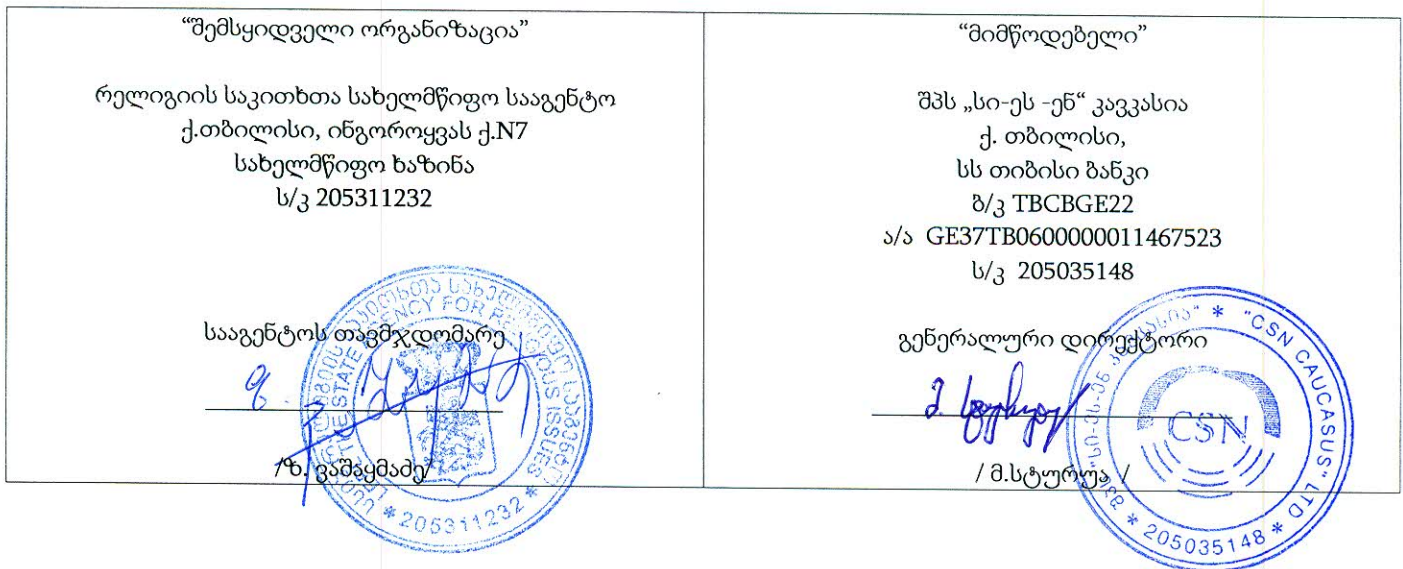 “შემსყიდველი ორგანიზაცია”
რელიგიის საკითხთა სახელმწიფო სააგენტო
ქ.თბილისი, ინგოროყვას ქ.N7
სახელმწიფო ხაზინა
ს/კ 205311232
სააგენტოს თავმჯდომარე
/ზ. ვაშაყმაძე/
LEPL THE STATE AGENCY FOR RELIGIOUS ISSUES
* 205311232 *
“მიმწოდებელი”
შპს „სი-ეს -ენ“ კავკასია
ქ. თბილისი,
სს თიბისი ბანკი
ბ/კ TBCBGE22
ა/ა GE37TB0600000011467523
ს/კ 205035148
გენერალური დირექტორი
/ მ.სტურუა /
* "CSN CAUCASUS" LTD *
CSN
* 205035148 *